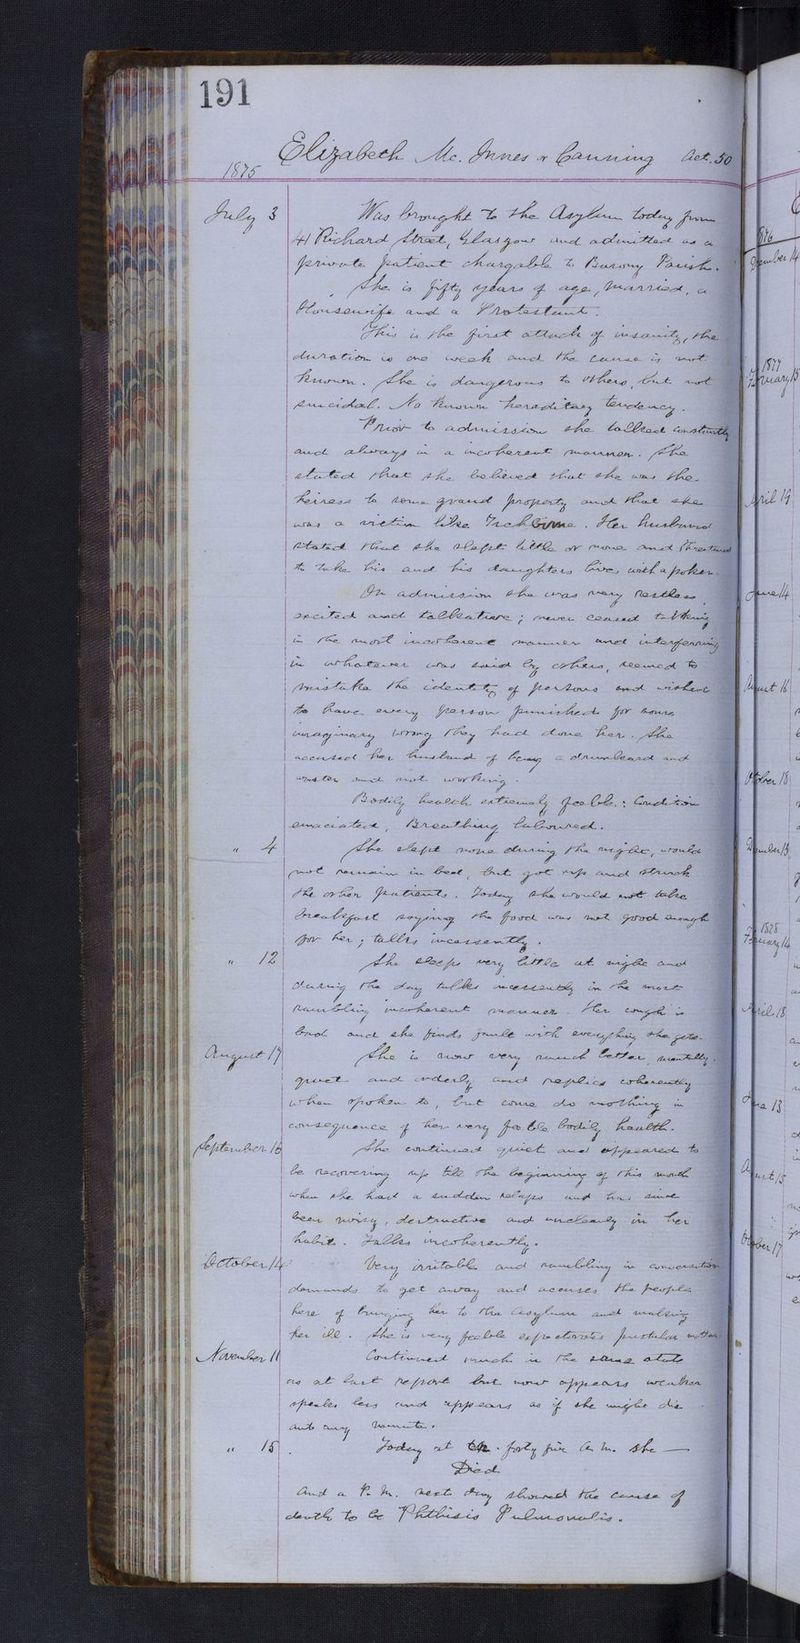 191
Elizabeth Mc. Innes or Canning Aet. 50
1875
July 3 Was brought to the Asylum today from
41 Richard Street, Glasgow and admitted as a
private patient chargable to Barony Parish.
She is fifty years of age, married, a
Housewife and a Protestant.
This is the first attack of insanity, the
duration is one week and the cause is not
known. She is dangerous to others, but not
suicidal. No known hereditary tendency.
Prior to admission she talked constantly
and always in a incoherent manner. She
stated that she believed that she was the
heiress to some grand property and that she
was a victim like Tichborne. Her husband
stated that she slept little or none and threatened
to take his and his daughters lives with a poker.
On admission she was very restless,
excited and talkative; never ceased talking
in the most incoherent manner and interfering
in whatever was said by others, seemed to
mistake the identity of persons and wished
to have every person punished for some
imaginary wrong they had done her. She
accused her husband of being a drunkard and
waster and not working.
Bodily health extremely feeble: Condition
emaciated, Breathing laboured.
" 4 She slept none during the night, would
not remain in bed, but got up and struck
the other patients. Today she would not take
breakfast saying the food was not good enough
for her; talks incessently.
" 12 She sleeps very little at night and
during the day talks incessently in the most
rambling incoherent manner. Her cough is
bad and she finds fault with everything she gets.
August 17 She is now very much better, mentally.
quiet and orderly and replies coherently
when spoken to, but can do nothing in
consequence of her very feeble bodily health.
September 16 She continued quiet and appeared to
be recovering up till the beginning of this month
when she had a sudden relaps and has since
been noisy, destructive and uncleanly in her
habits. Talks incoherently.
October 14 Very irritable and rambling in conversation
demands to get away and accuses the people
here of bringing her to the asylum and making
her ill. She is very feeble expectorates matter
November 11 Continued much in the same state
as at last report but now appears weaker
speaks less and appears as if she might die
any minute.
" 15 Today at forty five A.M. she —
Died
and a P.M. next day showed the cause of
death to be Phthisis Pulmonalis.
1876
December 14
1877
February 15
April 19
June 14
August 16
October 18
December 13
1878
February 14
April 18
June 13
August 15
October 17